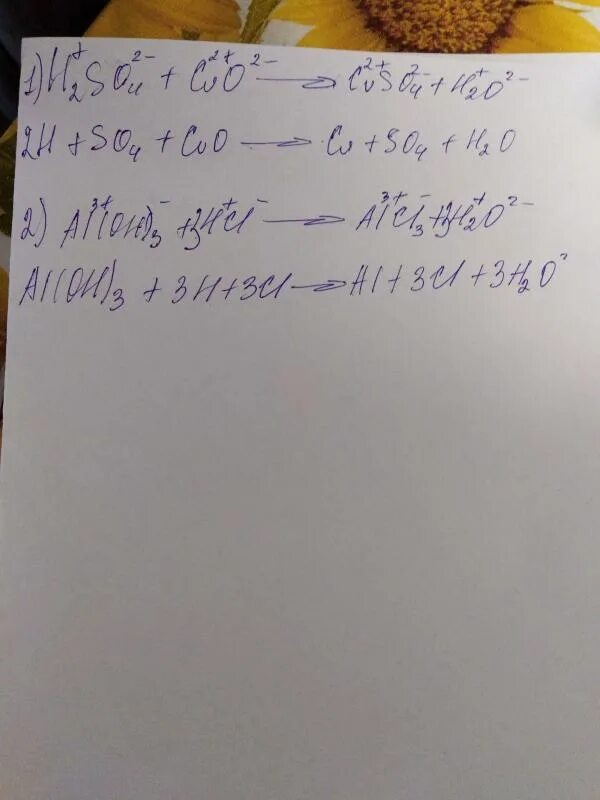 1) H₂⁺SO₄²⁻ + Cu²⁺O²⁻ → Cu²⁺SO₄²⁻ + H₂⁺O²⁻
2H + SO₄ + CuO → Cu + SO₄ + H₂O
2) Al³⁺(OH)₃⁻ + 3H⁺Cl⁻ → Al³⁺Cl₃⁻ + 3H₂⁺O²⁻
Al(OH)₃ + 3H + 3Cl → Al + 3Cl + 3H₂O²